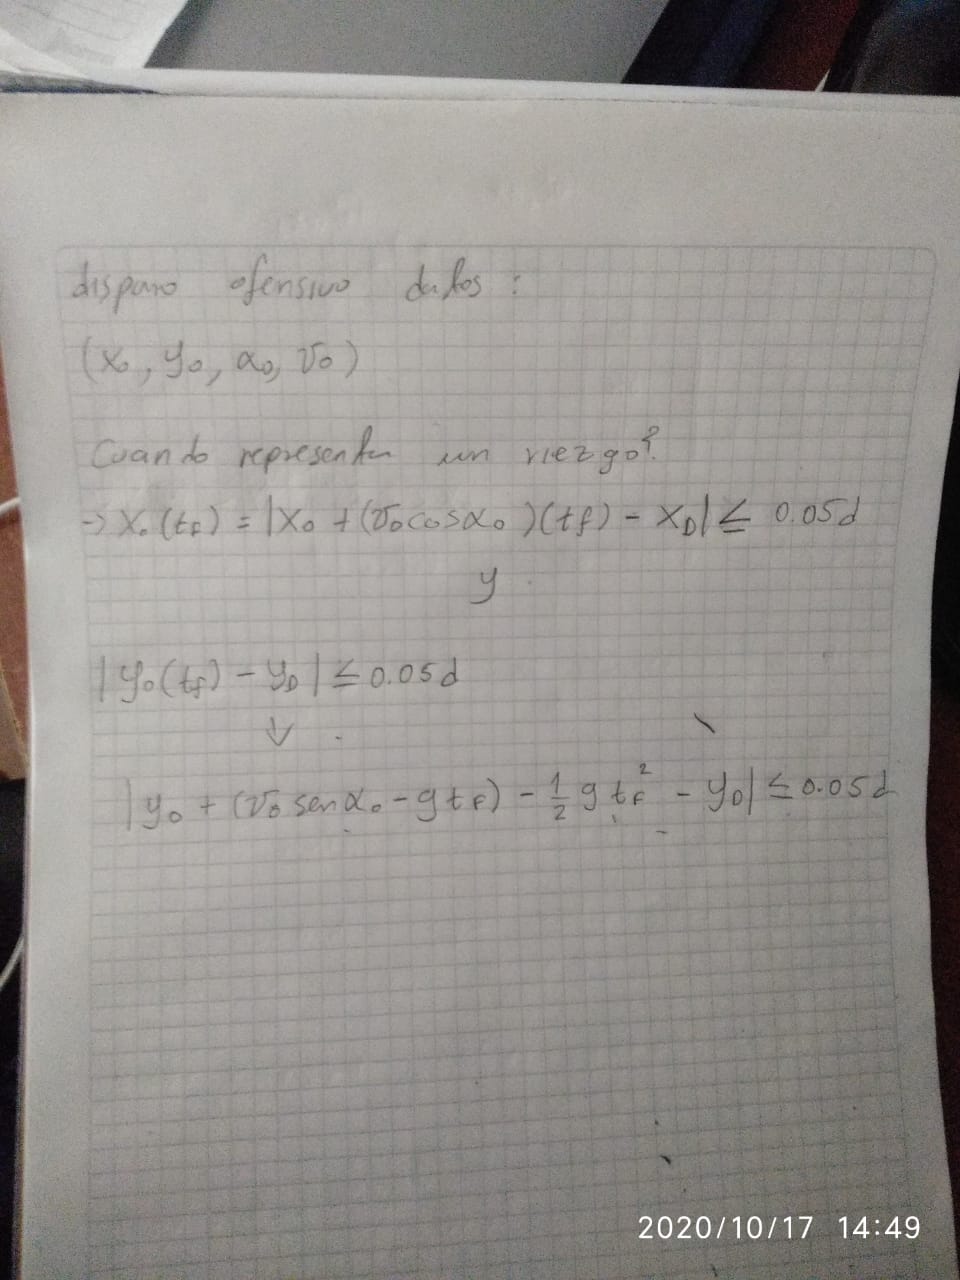 disparo ofensivo datos :
(x₀, y₀, α₀, v₀)
Cuando representa un riezgo?
→ X₀(tf) = |X₀ + (v₀cosα₀)(tf) - X_D| ≤ 0.05d
y
|y₀(tf) - y_D| ≤ 0.05d
↓
|y₀ + (v₀ senα₀ - gtf) - ½ g tf² - y_D| ≤ 0.05d
2020/10/17 14:49